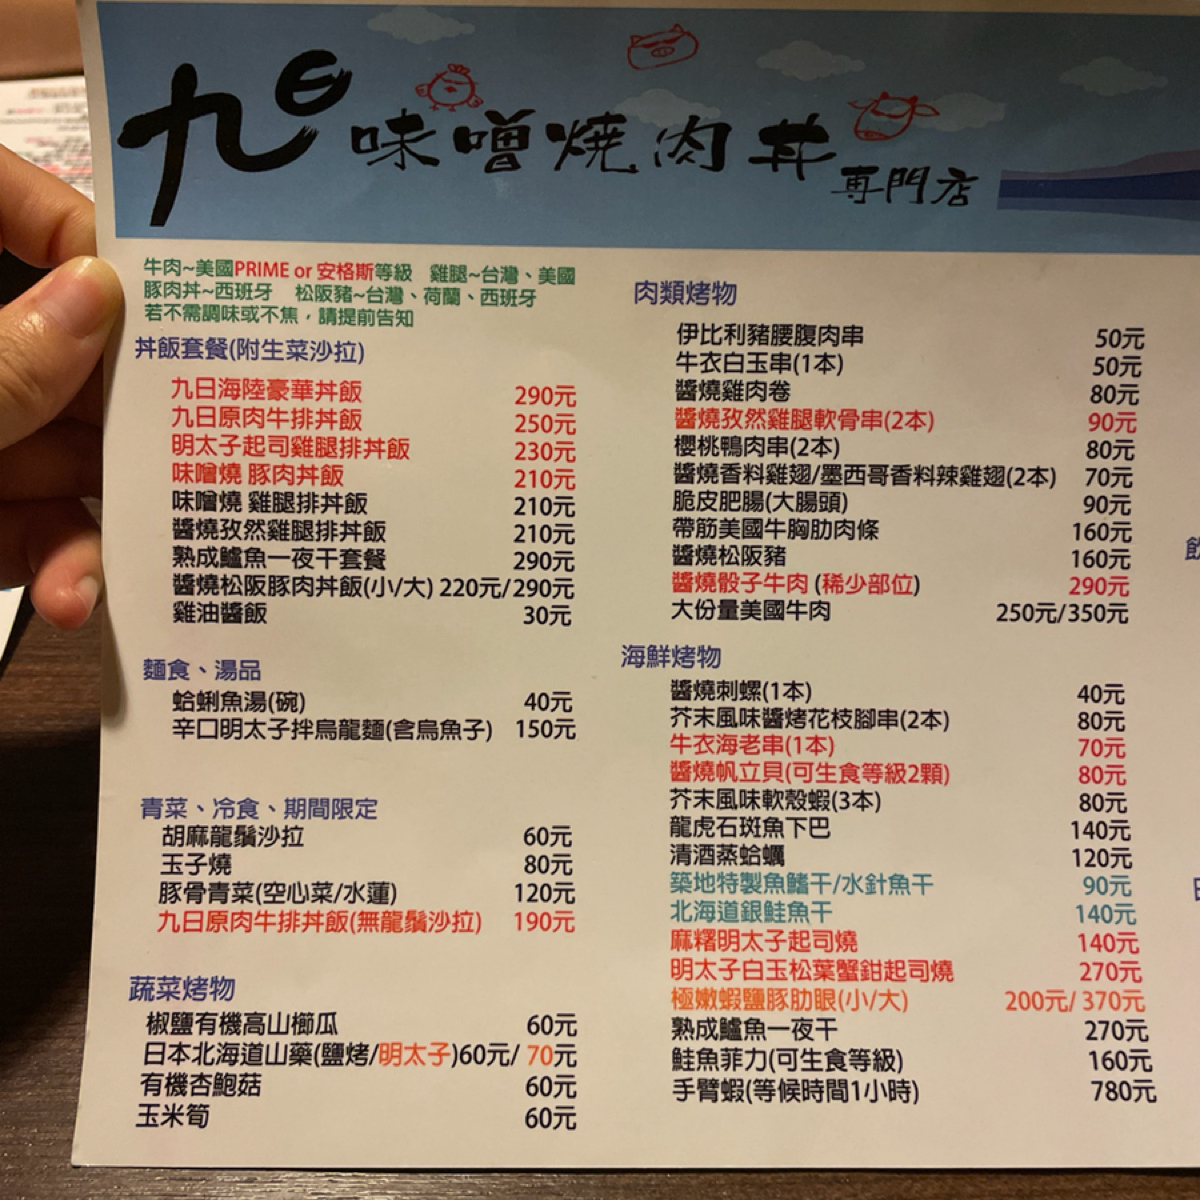 九日 味噌燒肉丼 專門店
牛肉~美國PRIME or 安格斯等級 雞腿~台灣、美國
豚肉丼~西班牙 松阪豬~台灣、荷蘭、西班牙
若不需調味或不焦，請提前告知
丼飯套餐(附生菜沙拉)
九日海陸豪華丼飯 290元
九日原肉牛排丼飯 250元
明太子起司雞腿排丼飯 230元
味噌燒 豚肉丼飯 210元
味噌燒 雞腿排丼飯 210元
醬燒孜然雞腿排丼飯 210元
熟成鱸魚一夜干套餐 290元
醬燒松阪豚肉丼飯(小/大) 220元/290元
雞油醬飯 30元
麵食、湯品
蛤蜊魚湯(碗) 40元
辛口明太子拌烏龍麵(含烏魚子) 150元
青菜、冷食、期間限定
胡麻龍鬚沙拉 60元
玉子燒 80元
豚骨青菜(空心菜/水蓮) 120元
九日原肉牛排丼飯(無龍鬚沙拉) 190元
蔬菜烤物
椒鹽有機高山櫛瓜 60元
日本北海道山藥(鹽烤/明太子)60元/ 70元
有機杏鮑菇 60元
玉米筍 60元
肉類烤物
伊比利豬腰腹肉串 50元
牛衣白玉串(1本) 50元
醬燒雞肉卷 80元
醬燒孜然雞腿軟骨串(2本) 90元
櫻桃鴨肉串(2本) 80元
醬燒香料雞翅/墨西哥香料辣雞翅(2本) 70元
脆皮肥腸(大腸頭) 90元
帶筋美國牛胸肋肉條 160元
醬燒松阪豬 160元
醬燒骰子牛肉 (稀少部位) 290元
大份量美國牛肉 250元/350元
海鮮烤物
醬燒刺螺(1本) 40元
芥末風味醬烤花枝腳串(2本) 80元
牛衣海老串(1本) 70元
醬燒帆立貝(可生食等級2顆) 80元
芥末風味軟殼蝦(3本) 80元
龍虎石斑魚下巴 140元
清酒蒸蛤蠣 120元
築地特製魚鰭干/水針魚干 90元
北海道銀鮭魚干 140元
麻糬明太子起司燒 140元
明太子白玉松葉蟹鉗起司燒 270元
極嫩蝦鹽豚肋眼(小/大) 200元/ 370元
熟成鱸魚一夜干 270元
鮭魚菲力(可生食等級) 160元
手臂蝦(等候時間1小時) 780元